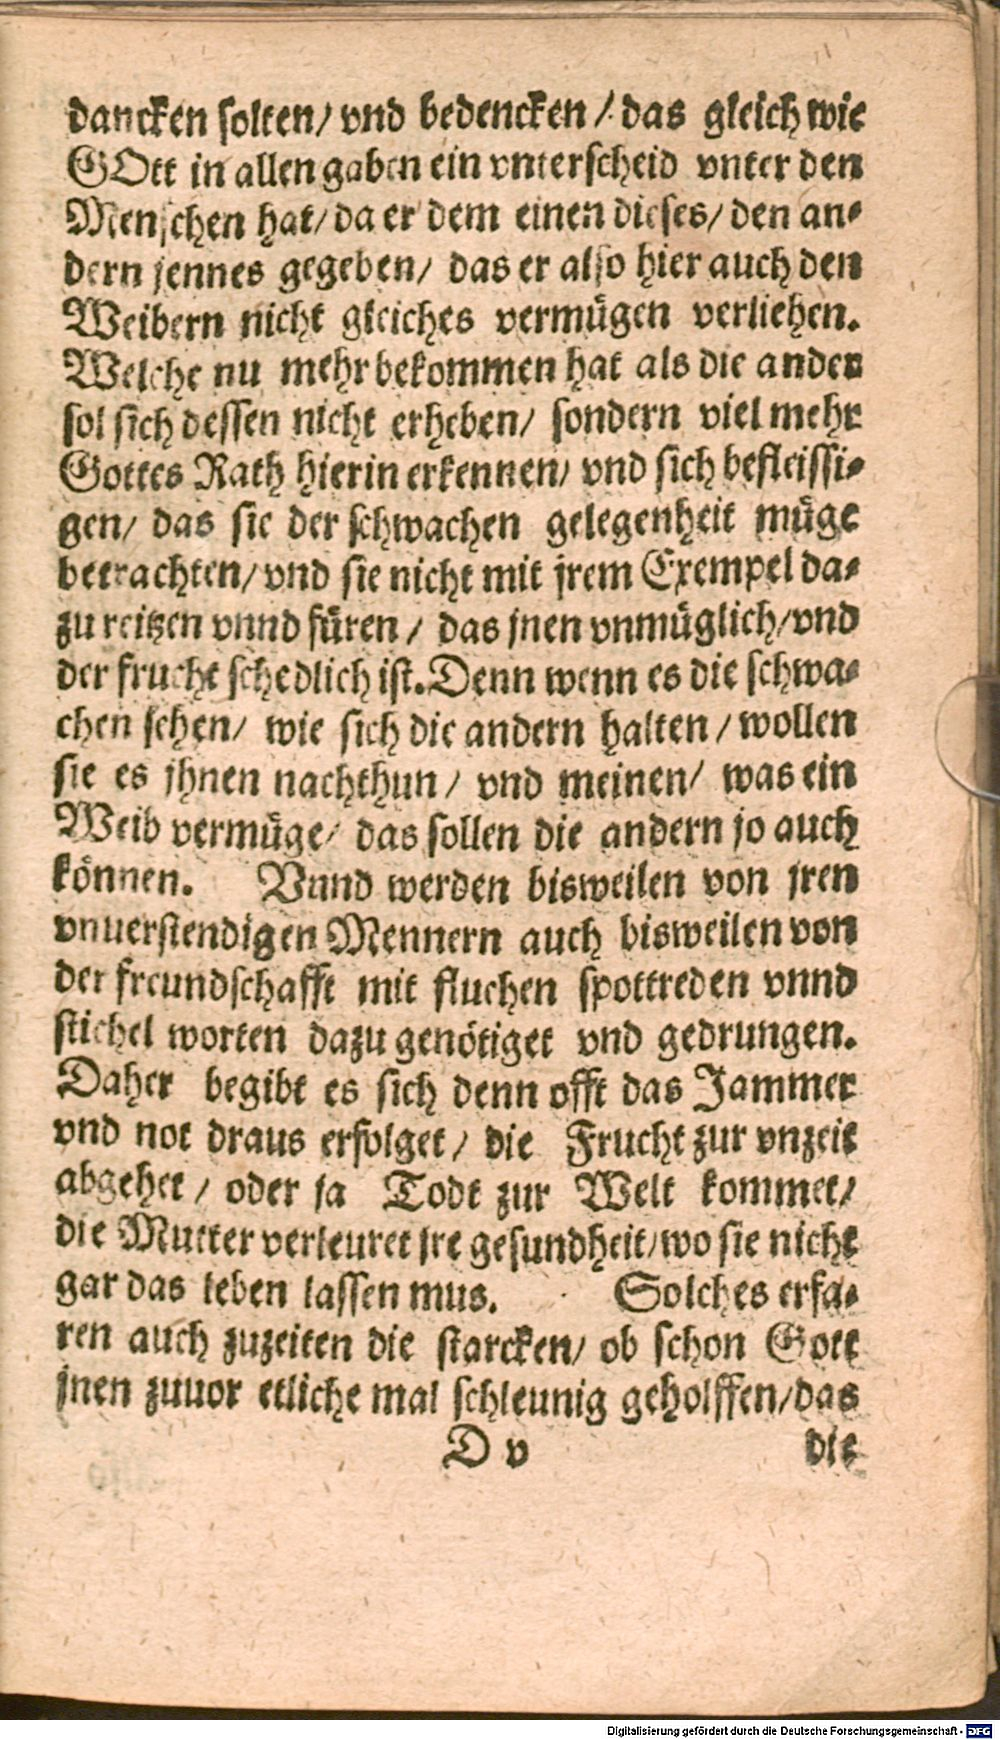 dancken solten/ vnd bedencken / das gleich wie
GOtt in allen gaben ein vnterscheid vnter den
Menschen hat/ da er dem einen dieses/ den an-
dern jennes gegeben/ das er also hier auch den
Weibern nicht gleiches vermügen verliehen.
Welche nu mehr bekommen hat als die ander
sol sich dessen nicht erheben/ sondern viel mehr
Gottes Rath hierin erkennen/ vnd sich befleissi-
gen/ das sie der schwachen gelegenheit müge
betrachten/ vnd sie nicht mit jrem Exempel da-
zu reitzen vnnd füren / das jnen vnmüglich/ vnd
der frucht schedlich ist. Denn wenn es die schwa-
chen sehen/ wie sich die andern halten / wollen
sie es jhnen nachthun / vnd meinen/ was ein
Weib vermüge/ das sollen die andern jo auch
können. Vnnd werden bisweilen von jren
vnuerstendigen Mennern auch bisweilen von
der freundschafft mit fluchen spottreden vnnd
stichel worten dazu genötiget vnd gedrungen.
Daher begibt es sich denn offt das Jammer
vnd not draus erfolget / die Frucht zur vnzeit
abgehet / oder ja Todt zur Welt kommet/
die Mutter verleuret jre gesundheit/ wo sie nicht
gar das leben lassen mus. Solches erfa-
ren auch zuzeiten die starcken/ ob schon Gott
jnen zuuor etliche mal schleunig geholffen/ das
D v die
Digitalisierung gefördert durch die Deutsche Forschungsgemeinschaft - DFG